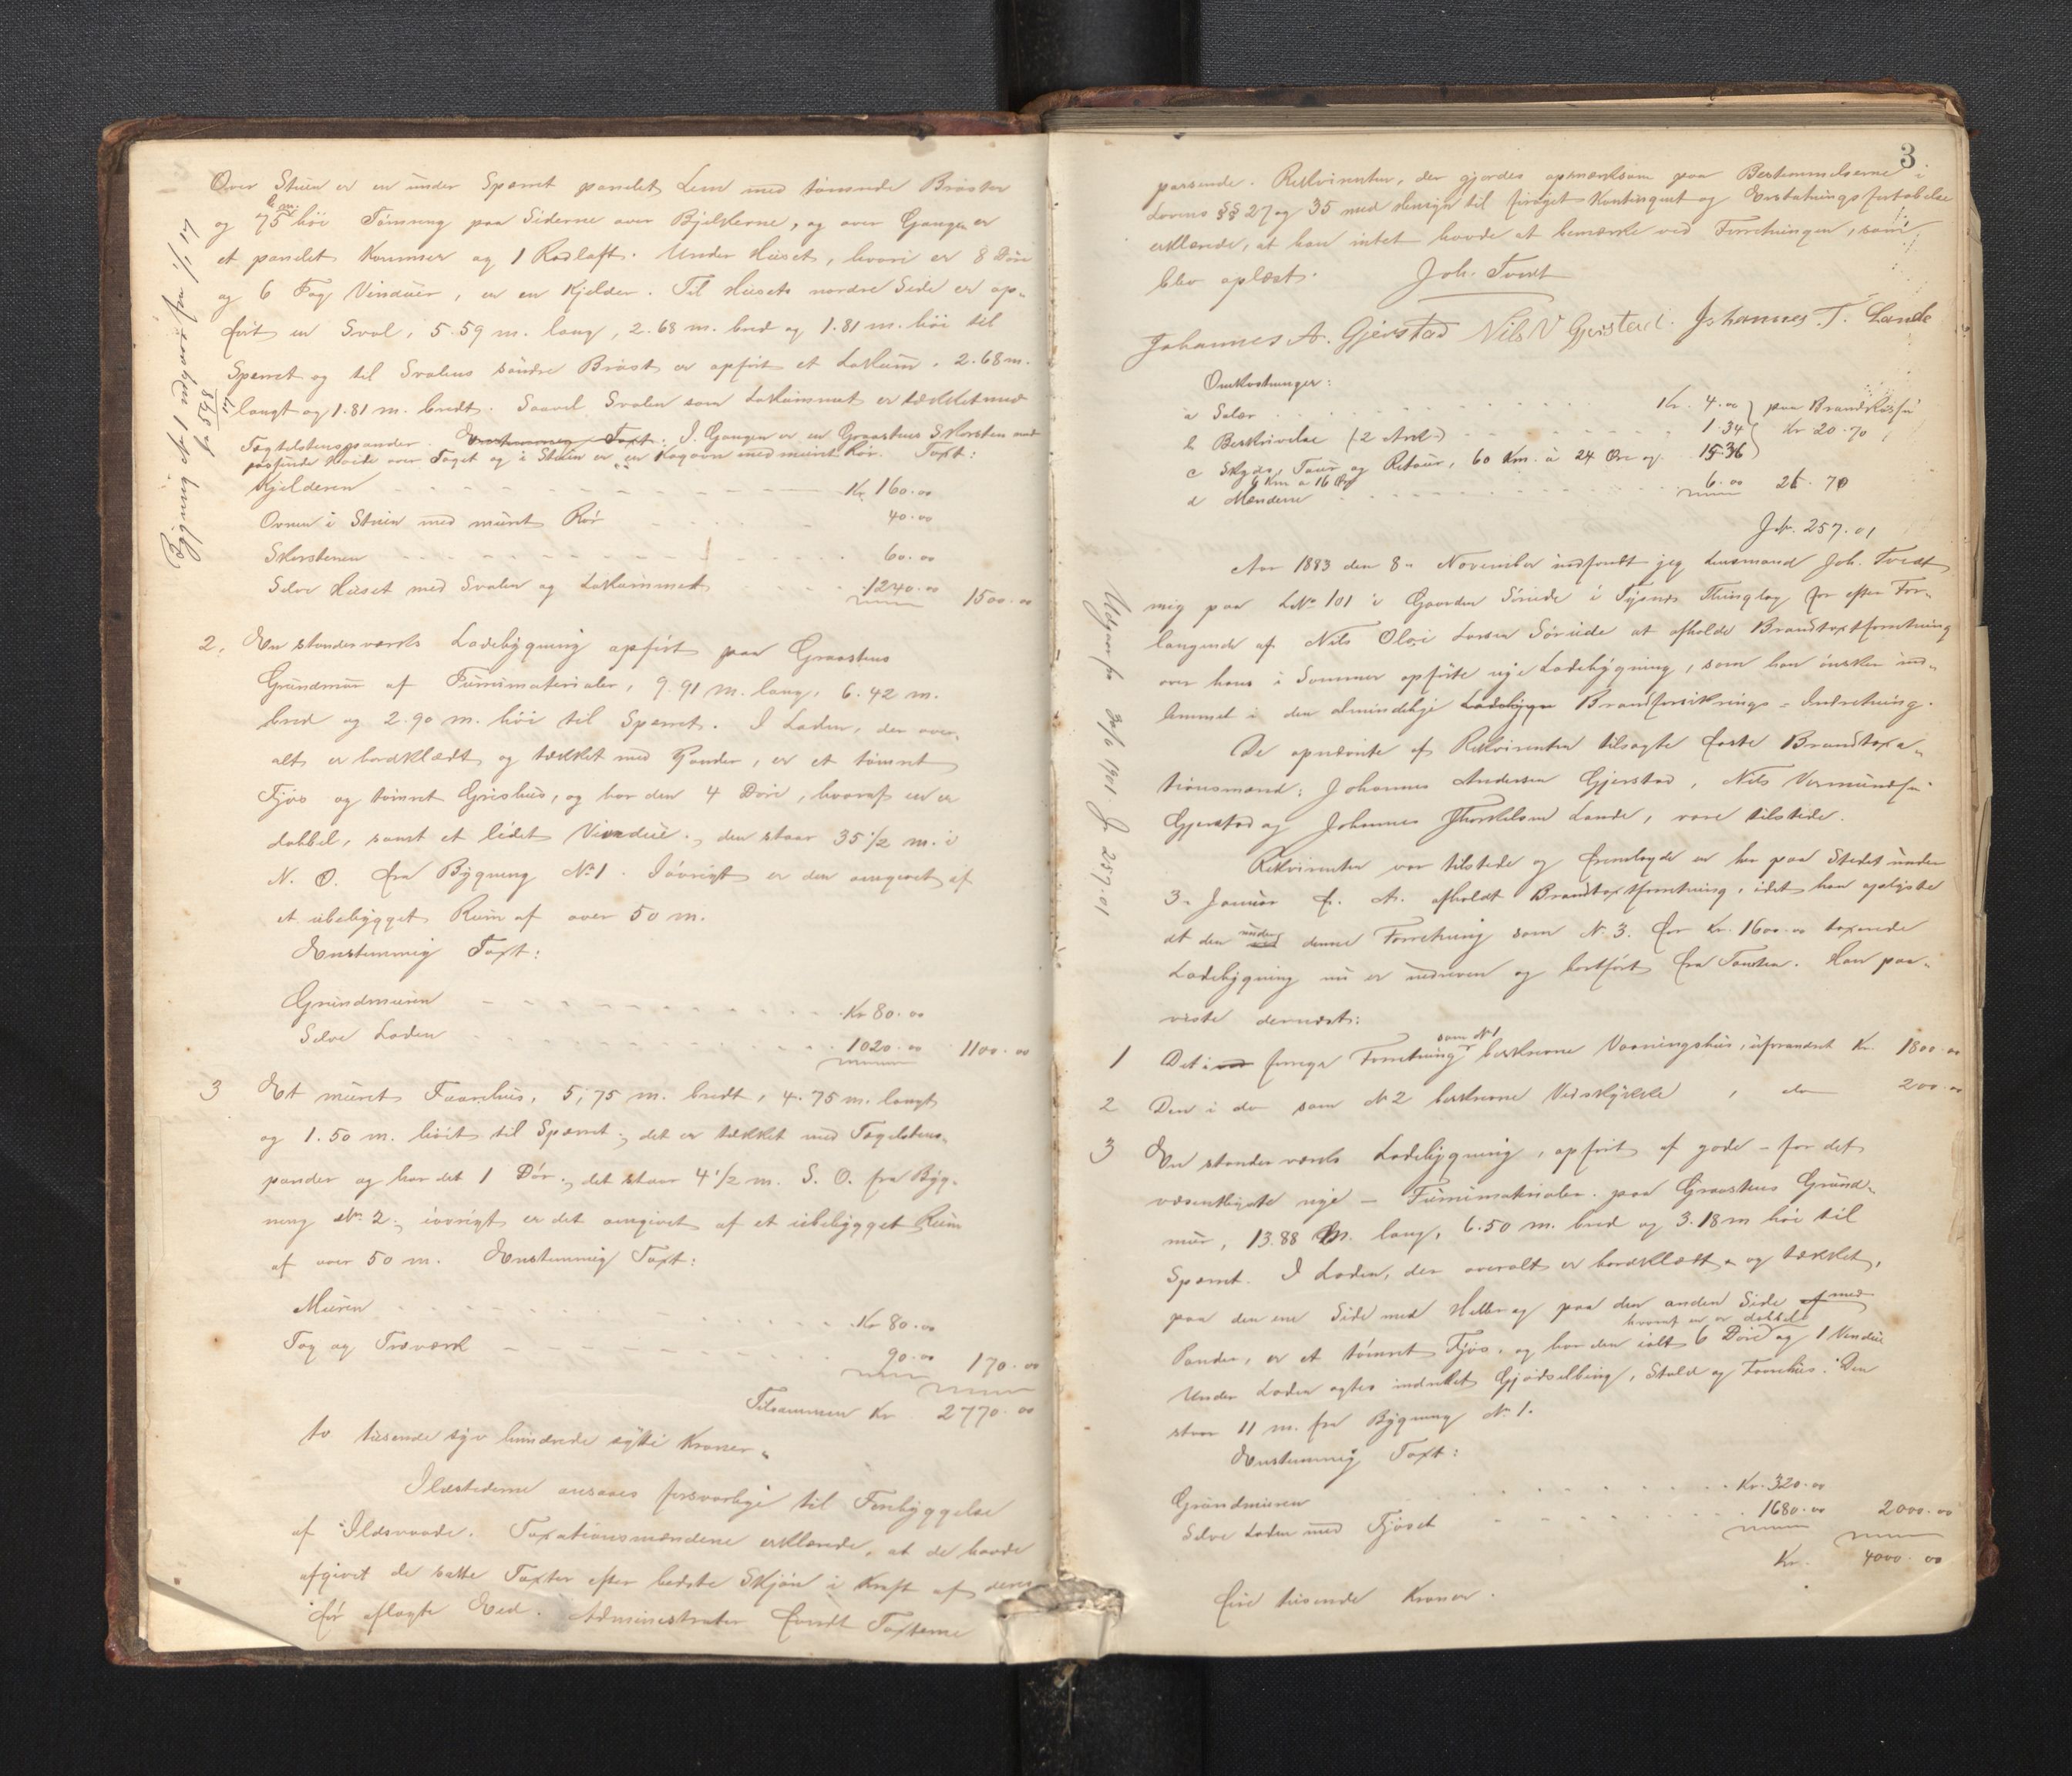 Over Stuen er en under Sparret panelet Lem med tømrede Brøster
og 75 c.m. høi Tømring paa Siderne over Bjelkerne, og over Gangen er
et panelet Kammer og 1 Rodloft. Under Huset, hvori er 8 Døre
og 6 Fag Vinduer, er en Kjelder. Til Husets nordre Side er op-
ført en Sval, 5.59 m. lang, 2.68 m. bred og 1.81 m. høi til
Sparret og til Svalens søndre Brøst er opført et Lokum, 2.68 m.
langt og 1.81 m. bredt. Saavel Svalen som Lokummet er tækket med
Tagtelstenspander. Enstemmig Taxt: I Gangen er en Graastens Skorsten med
passende Høide over Taget og i Stuen er en Kogovn med muret Rør. Taxt:
Kjelderen Kr. 160.00
Ovnen i Stuen med muret Rør 40.00
Skorstenen 60.00
Selve Huset med Svalen og Lokummet 1240.00 1500.00
2. En stenderværks Ladebygning opført paa Graastens
Grundmur af Furumaterialer, 9.91 m. lang, 6.42 m.
bred og 2.90 m. høi til Sparret. I Laden, der over-
alt er bordklædt og tækket med Pander, er et tømret
Fjøs og tømret Grishus, og har den 4 Døre, hvoraf en er
dobbel, samt et lidet Vindue; den staar 35 1/2 m. i
N. O. fra Bygning No 1. Iøvrigt er den omgivet af
et ubebygget Rum af over 50 m.
Enstemmig Taxt:
Grundmuren Kr 80.00
Selve Laden 1020.00 1100.00
3 Et muret Faarehus, 5,75 m. bredt, 4.75 m. langt
og 1.50 m. høit til Sparret; det er tækket med Tagelstens-
pander og har det 1 Dør; det staar 4 1/2 m. S. O. fra Byg-
ning No 2; iøvrigt er det omgivet af et ubebygget Rum
af over 50 m. Enstemmig Taxt:
Muren Kr 80.00
Tag og Træværk 90.00 170.00
Tilsammen Kr 2770.00
to tusende syv hundrede sytti Kroner
Ildstederne ansaaes forsvarlige til Forebyggelse
af Ildsvaade. Taxationsmændene erklærede, at de havde
afgivet de satte Taxter efter bedste Skjøn i Kraft af deres
før aflagte Eed. Administrator fandt Taxterne
3
passende. Rekvirenten, der gjordes opmærksom paa Bestemmelserne i
Lovens §§ 27 og 35 med Hensyn til forøget Kontingent og Erstatnings fortabelse
erklærede, at han intet havde at bemærke ved Forretningen, som
blev oplæst. Joh. Tvedt
Johannes A. Gjerstad Nils V Gjerstad. Johannes T. Lande
Omkostninger:
a Salær Kr. 4.00 paa Brandkassen
b Beskrivelse (2 Ark) 1.34 Kr 20.70
c Skyds, Tour og Retour, 60 Km. a 24 Øre og 15.36
6 Km a 16 Øre
d Mændene 6.00 26.70
Jr. 257.01
Aar 1883 den 8. November indfandt jeg Lensmand Joh. Tvedt
mig paa LNo 101 i Gaarden Sørude i Tysnes Thinglag for efter For-
langende af Nils Olai Larsen Sørude at afholde Brandtaxtforretning
over hans i Sommer opførte nye Ladebygning, som han ønsker ind-
lemmet i den almindelige Ladebygn Brandforsikrings-Indretning.
De opnævnte af Rekvirenten tilsagte faste Brandtaxa-
tionsmænd: Johannes Andersen Gjerstad, Nils Vermundsen
Gjerstad og Johannes Thorkelsen Lande, vare tilstede.
Rekvirenten var tilstede og fremlagde en her paa Stedet under
3. Januar f. A. afholdt Brandtaxtforretning, idet han oplyste
at den under denne Forretning som N. 3. for Kr. 1600.00 taxerede
Ladebygning nu er nedreven og bortført fra Tomten. Han paa-
viste dernæst:
1 Det i forrige Forretning som No 1 beskrevne Vaaningshus, uforandret Kr. 1800.00
2 Den i do som No 2 beskrevne Vedskykke, do 200.00
3 En stenderværks Ladebygning, opført af gode - for det
væsentligste nye - Furumaterialer paa Graastens Grund-
mur, 13.88 m. lang, 6.50 m. bred og 3.18 m høi til
Sparret. I Laden, der overalt er bordklædt og tækket,
paa den ene Side med Heller og paa den anden Side af med
Pander, er et tømret Fjøs, og har den ialt 6 Døre hvoraf en er dobbel og 1 Vindue
Under Laden agtes indrettet Gjødselbing, Stald og Faarehus. Den
staar 11 m. fra Bygning No 1.
Enstemmig Taxt:
Grundmuren Kr. 320.00
Selve Laden med Fjøset 1680.00 2000.00
Kr. 4000.00
fire tusende Kroner.
Udgaar fra 30/6 1901. Jr 257.01